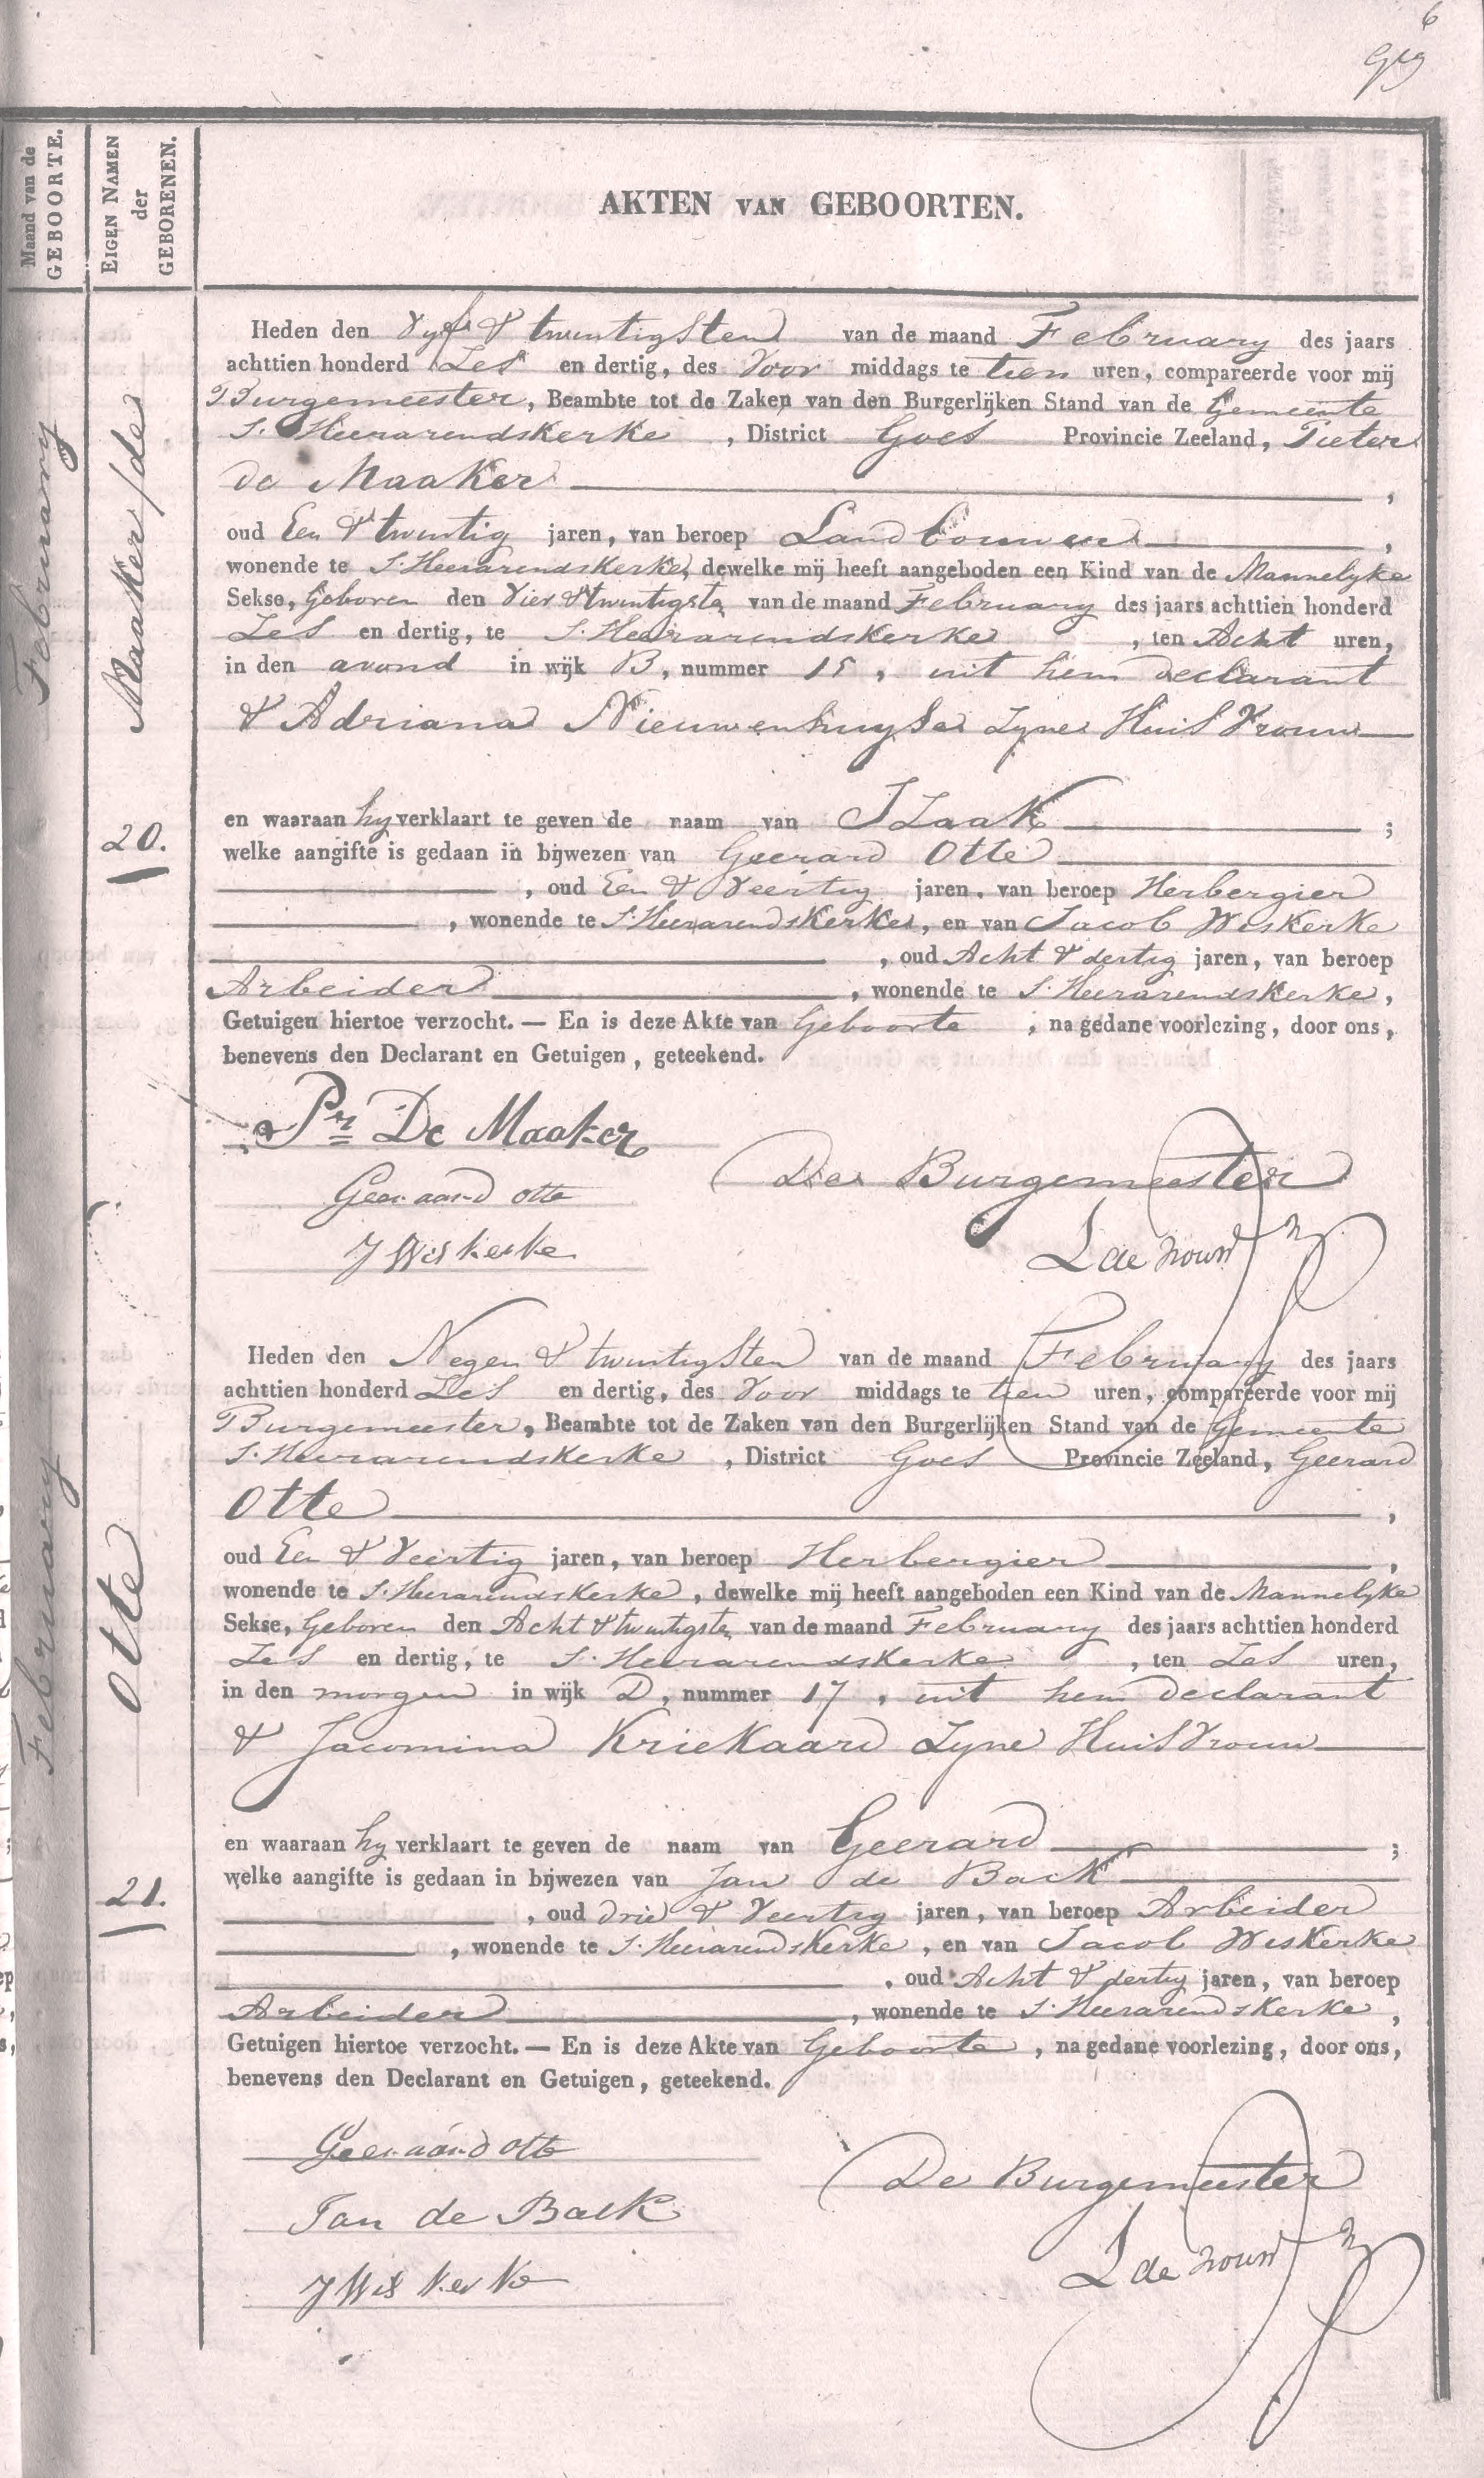 6
Maand van de
GEBOORTE.
EIGEN NAMEN
der
GEBORENEN.
AKTEN VAN GEBOORTEN.
February
Maaker / de
20.
Heden den Vyf & twintigsten van de maand February des jaars
achttien honderd Zes en dertig, des Voor middags te tien uren, compareerde voor mij
Burgemeester, Beambte tot de Zaken van den Burgerlijken Stand van de Gemeente
S. Heerarendskerke, District Goes Provincie Zeeland, Pieter
de Maaker,
oud Een & twintig jaren, van beroep Landbouwer,
wonende te S. Heerarendskerke, dewelke mij heeft aangeboden een Kind van de Mannelyke
Sekse, Geboren den Vier & twintigste van de maand February des jaars achttien honderd
Zes en dertig, te S. Heerarendskerke, ten Acht uren,
in den avond in wijk B, nummer 15, uit hem declarant
& Adriana Nieuwenhuyse Zyne Huisvrouw
en waaraan hy verklaart te geven de naam van Izaak;
welke aangifte is gedaan in bijwezen van Geerard Otte
, oud Een & Veertig jaren, van beroep Herbergier
, wonende te S. Heerarendskerke, en van Jacob Weskerke
, oud Acht & dertig jaren, van beroep
Arbeider, wonende te S. Heerarendskerke,
Getuigen hiertoe verzocht. — En is deze Akte van Geboorte, na gedane voorlezing, door ons,
benevens den Declarant en Getuigen, geteekend.
Pr De Maaker
Geeraard Otte
J Weskerke
De Burgemeester
February
Otte
21.
Heden den Negen & twintigsten van de maand February des jaars
achttien honderd Zes en dertig, des Voor middags te tien uren, compareerde voor mij
Burgemeester, Beambte tot de Zaken van den Burgerlijken Stand van de Gemeente
S. Heerarendskerke, District Goes Provincie Zeeland, Geerard
Otte,
oud Een & Veertig jaren, van beroep Herbergier,
wonende te S. Heerarendskerke, dewelke mij heeft aangeboden een Kind van de Mannelyke
Sekse, Geboren den Acht & twintigste van de maand February des jaars achttien honderd
Zes en dertig, te S. Heerarendskerke, ten Zes uren,
in den morgen in wijk D, nummer 17, uit hem declarant
& Jacomina Kriekaard Zyne Huisvrouw
en waaraan hy verklaart te geven de naam van Geerard;
welke aangifte is gedaan in bijwezen van Jan de Back
, oud drie & Veertig jaren, van beroep Arbeider
, wonende te S. Heerarendskerke, en van Jacob Weskerke
, oud Acht & dertig jaren, van beroep
Arbeider, wonende te S. Heerarendskerke,
Getuigen hiertoe verzocht. — En is deze Akte van Geboorte, na gedane voorlezing, door ons,
benevens den Declarant en Getuigen, geteekend.
Geeraard Otte
Jan de Back
J Weskerke
De Burgemeester